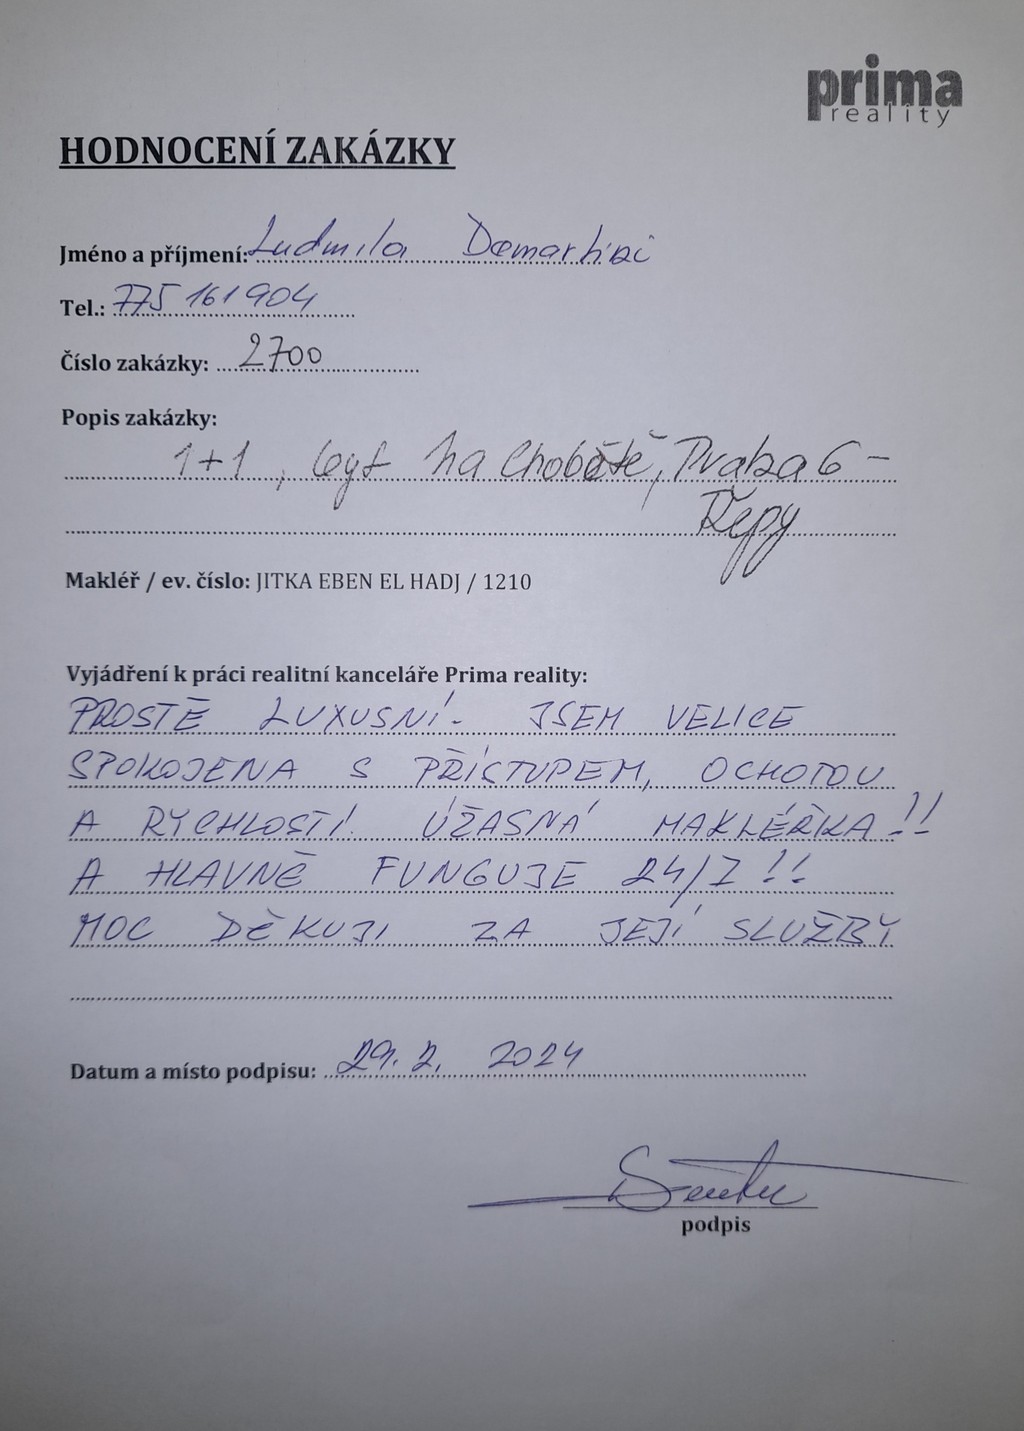 prima
reality
HODNOCENÍ ZAKÁZKY
Jméno a příjmení: Ludmila Demartini
Tel.: 775 161 904
Číslo zakázky: 2700
Popis zakázky:
1+1, byt na Chobotě, Praha 6 -
Řepy
Makléř / ev. číslo: JITKA EBEN EL HADJ / 1210
Vyjádření k práci realitní kanceláře Prima reality:
PROSTĚ LUXUSNÍ. JSEM VELICE
SPOKOJENA S PŘÍSTUPEM, OCHOTOU
A RYCHLOSTÍ. ÚŽASNÁ MAKLÉŘKA!!
A HLAVNĚ FUNGUJE 24/7!!
MOC DĚKUJI ZA JEJÍ SLUŽBY
Datum a místo podpisu: 29. 2. 2024
podpis